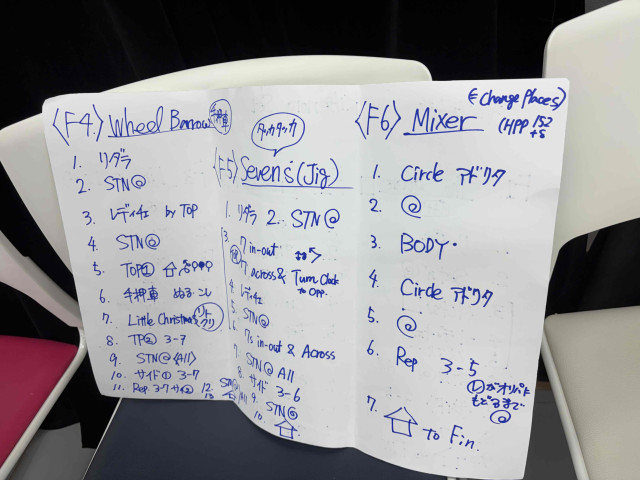 〈F4.〉 Wheel Barrow 手押車
1. リダラ
2. STN@
3. レディチェ by TOP
4. STN@
5. TOP①
6. 手押車
7. Little Christmas リトクリ
8. TP② 3-7
9. STN@〈All〉
10. サイド① 3-7
11. Rep. 3-7 サイ② 12. STN
タカタッカ
〈F5〉 Seven's (Jig)
1. リダラ 2. STN@
3. 7 in-out
7 across & Turn Clock to OPP.
4. レディチェ
5. STN@
6. 7s in-out & Across
7. STN@ All
8. サイド 3-6
9. STN@
10.
(Change Places)
〈F6〉 Mixer (HPP 152 +8
1. Circle アドリタ
2. @
3. BODY.
4. Circle アドリタ
5. @
6. Rep 3-5
Ⓛがオリパに
もどるまで
@
7. to Fin.